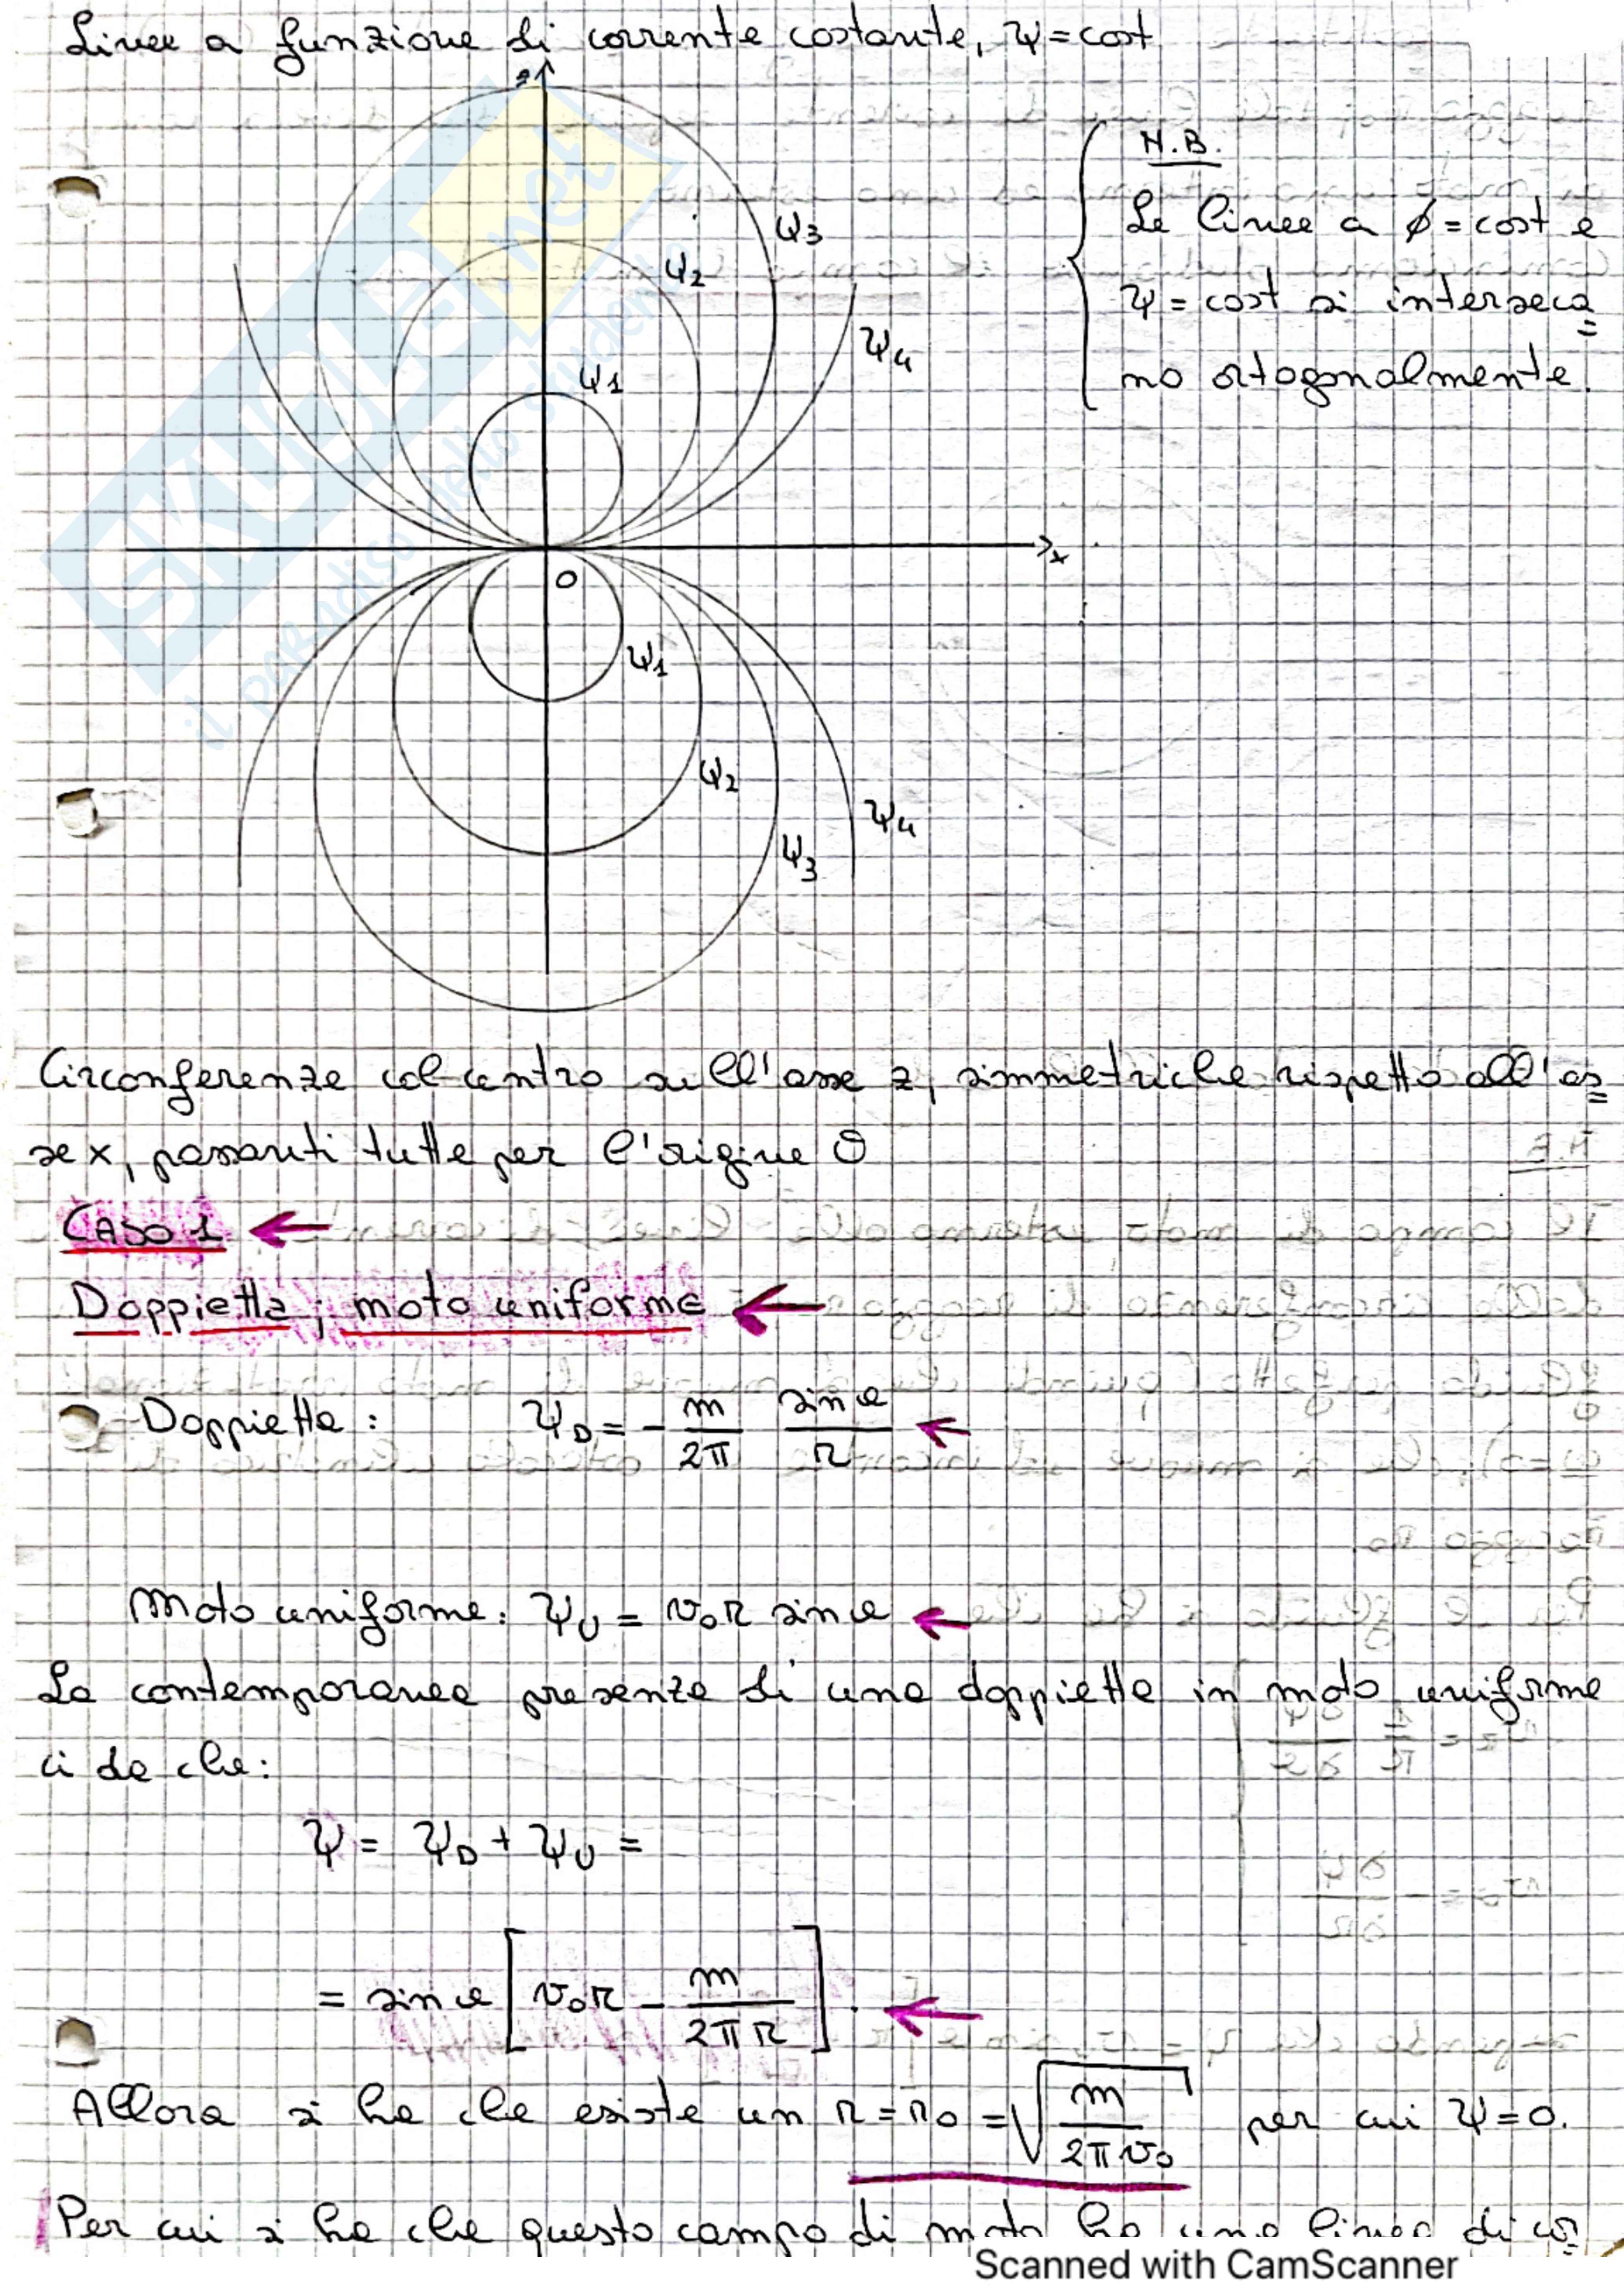 Linee a funzione di corrente costante, ψ=cost
z
N.B.
Le linee a ϕ=cost e
ψ=cost si interseca
no ortogonalmente.
ψ3
ψ2
ψ4
ψ1
x
O
ψ1
ψ2
ψ4
ψ3
SKUOLA.net
il paradiso dello studente
Circonferenze col centro sull'asse z, simmetriche rispetto all'as
se x, passanti tutte per l'origine O
CASO 1
Doppietta; moto uniforme
Doppietta: ψD = - m/2π sin α/r
Moto uniforme: ψU = v0 r sin α
La contemporanea presenza di una doppietta in moto uniforme
ci da che:
ψ = ψD + ψU =
= sin α [v0 r - m/2πr].
Allora si ha che esiste un r = r0 = √(m/2πv0) per cui ψ=0.
Per cui si ha che questo campo di moto ha una linea di co
Scanned with CamScanner